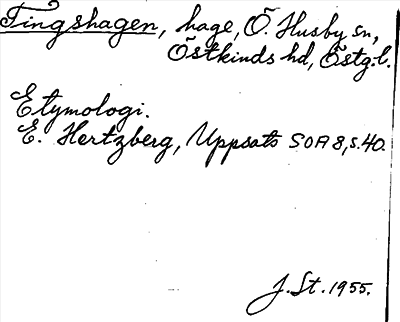 Tingshagen, hage, Ö. Husby sn,
Östkinds hd, Östg:l.
Etymologi.
E. Hertzberg, Uppsats SOA 8, s. 40.
J. St. 1955.